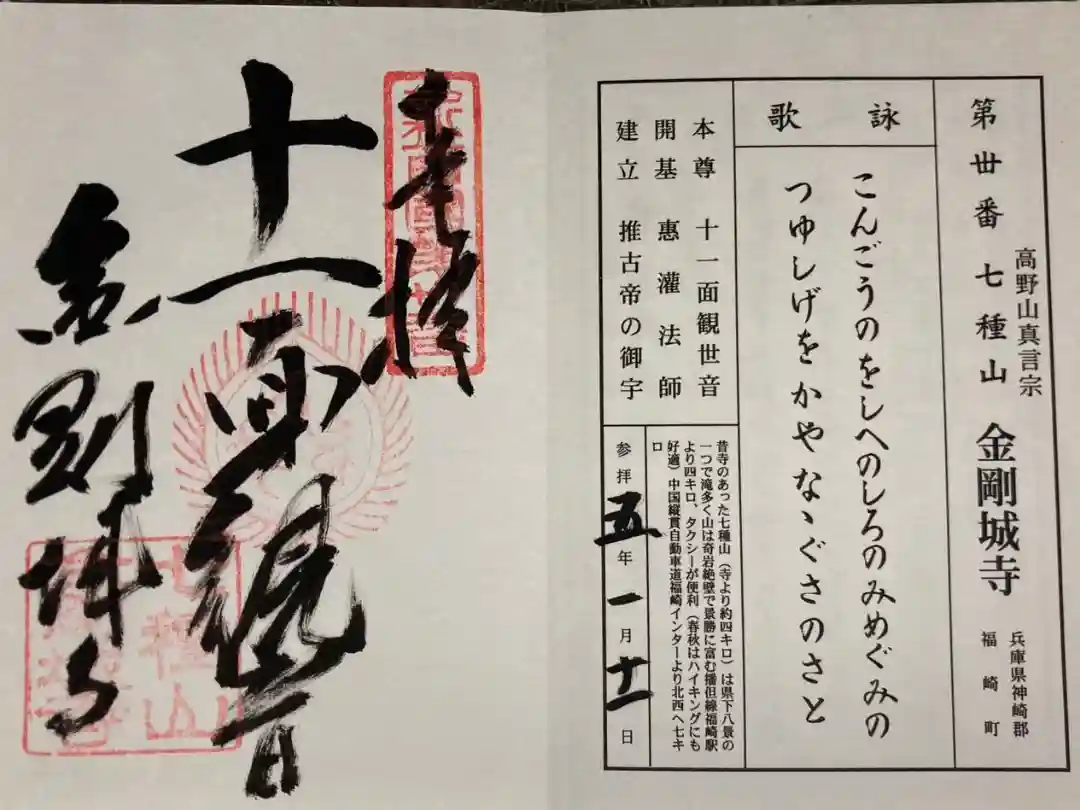 第丗番 七種山 金剛城寺
高野山真言宗
兵庫県神崎郡
福崎町
詠歌
こんごうのをしへのしろのみめぐみの
つゆしげをかやなゝぐさのさと
本尊 十一面観世音
開基 惠灌法師
建立 推古帝の御宇
昔寺のあった七種山（寺より約四キロ）は県下八景の
一つで滝多く山は奇岩絶壁で景勝に富む播但線福崎駅
より四キロ、タクシーが便利（春秋はハイキングにも
好適）中国縦貫自動車道福崎インターより北西へ七キ
ロ
参拝 五年一月十一日
奉拝
十一面観音
金剛城寺
七種山